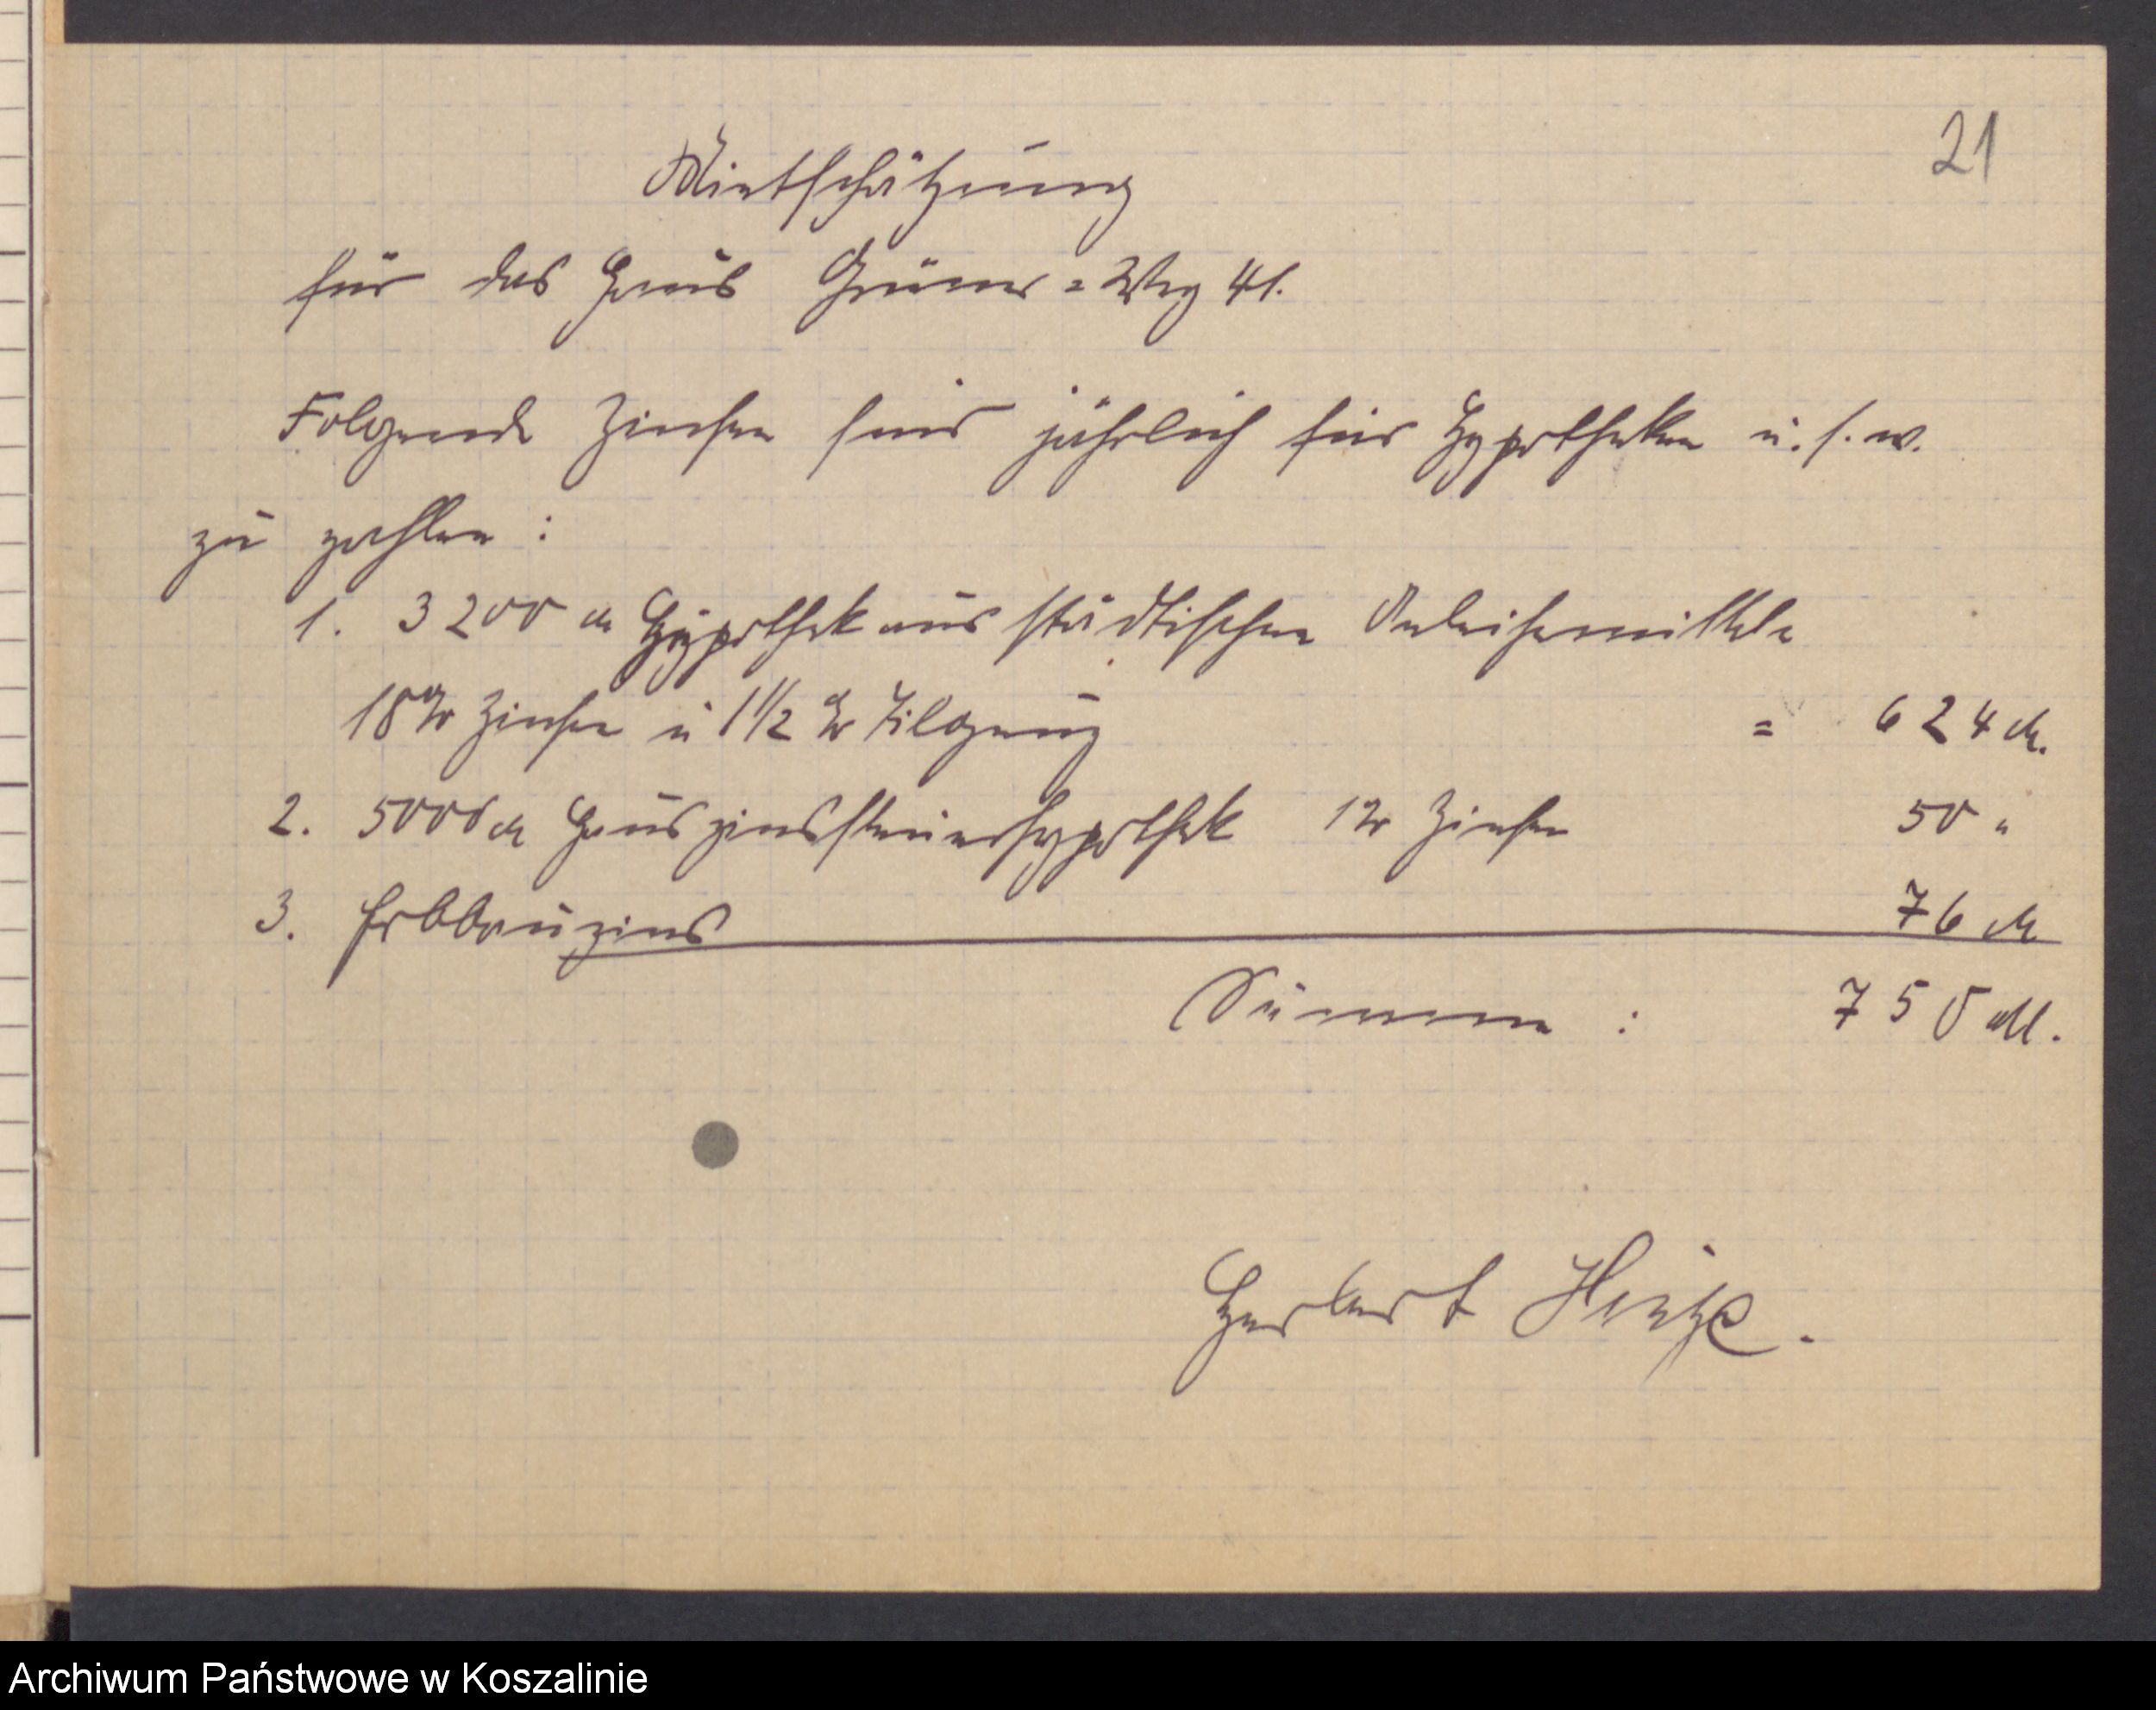 21
Mietschätzung
für das Haus Grüner-Weg 41.
Folgende Zinsen sind jährlich für Hypotheken u.s.w.
zu zahlen:
1. 3200 M Hypothek aus städtischen Anleihemitteln
18% Zinsen u 1 1/2 % Tilgung = 624 M.
2. 5000 M Hauszinssteuerhypothek 1% Zinsen 50 "
3. Erbbauzins 76 M
Summe: 750 M.
Herbert
Archiwum Państwowe w Koszalinie